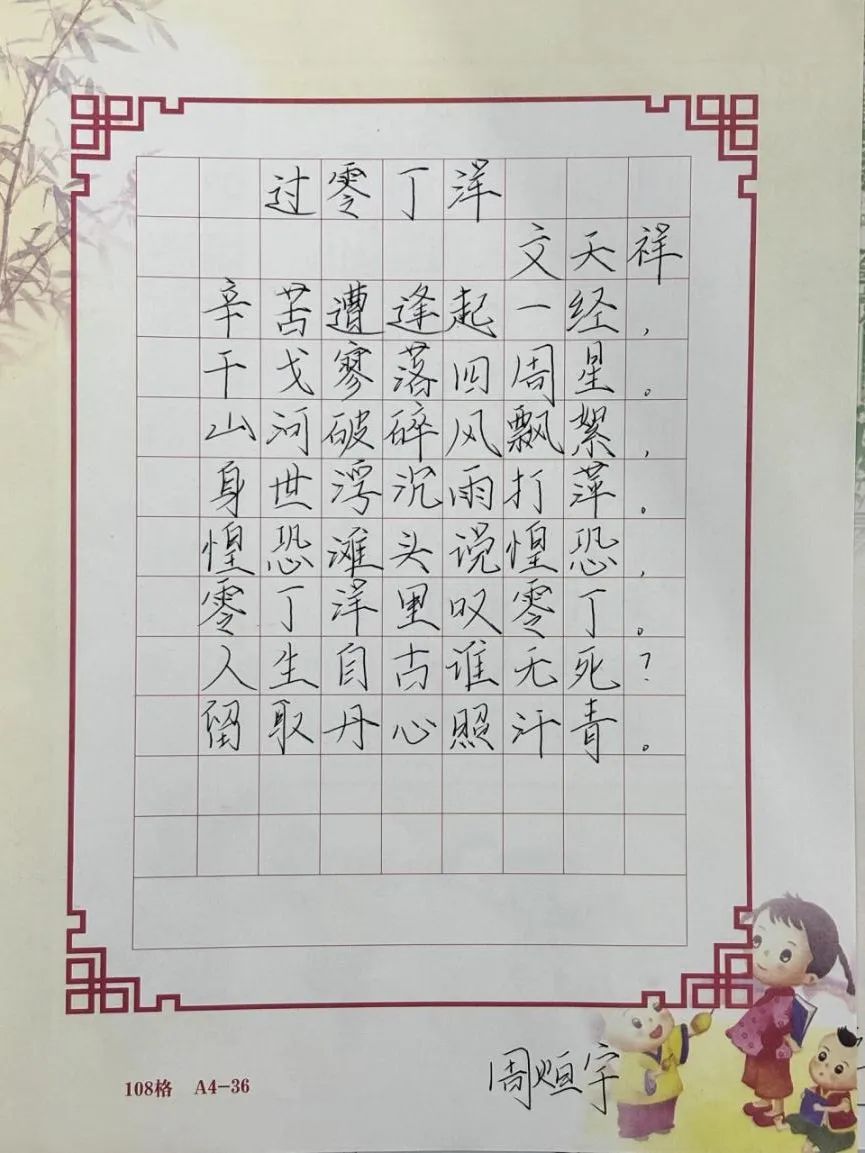 过零丁洋
文天祥
辛苦遭逢起一经,
干戈寥落四周星。
山河破碎风飘絮,
身世浮沉雨打萍。
惶恐滩头说惶恐,
零丁洋里叹零丁。
人生自古谁无死?
留取丹心照汗青。
108格 A4-36
周烜宇